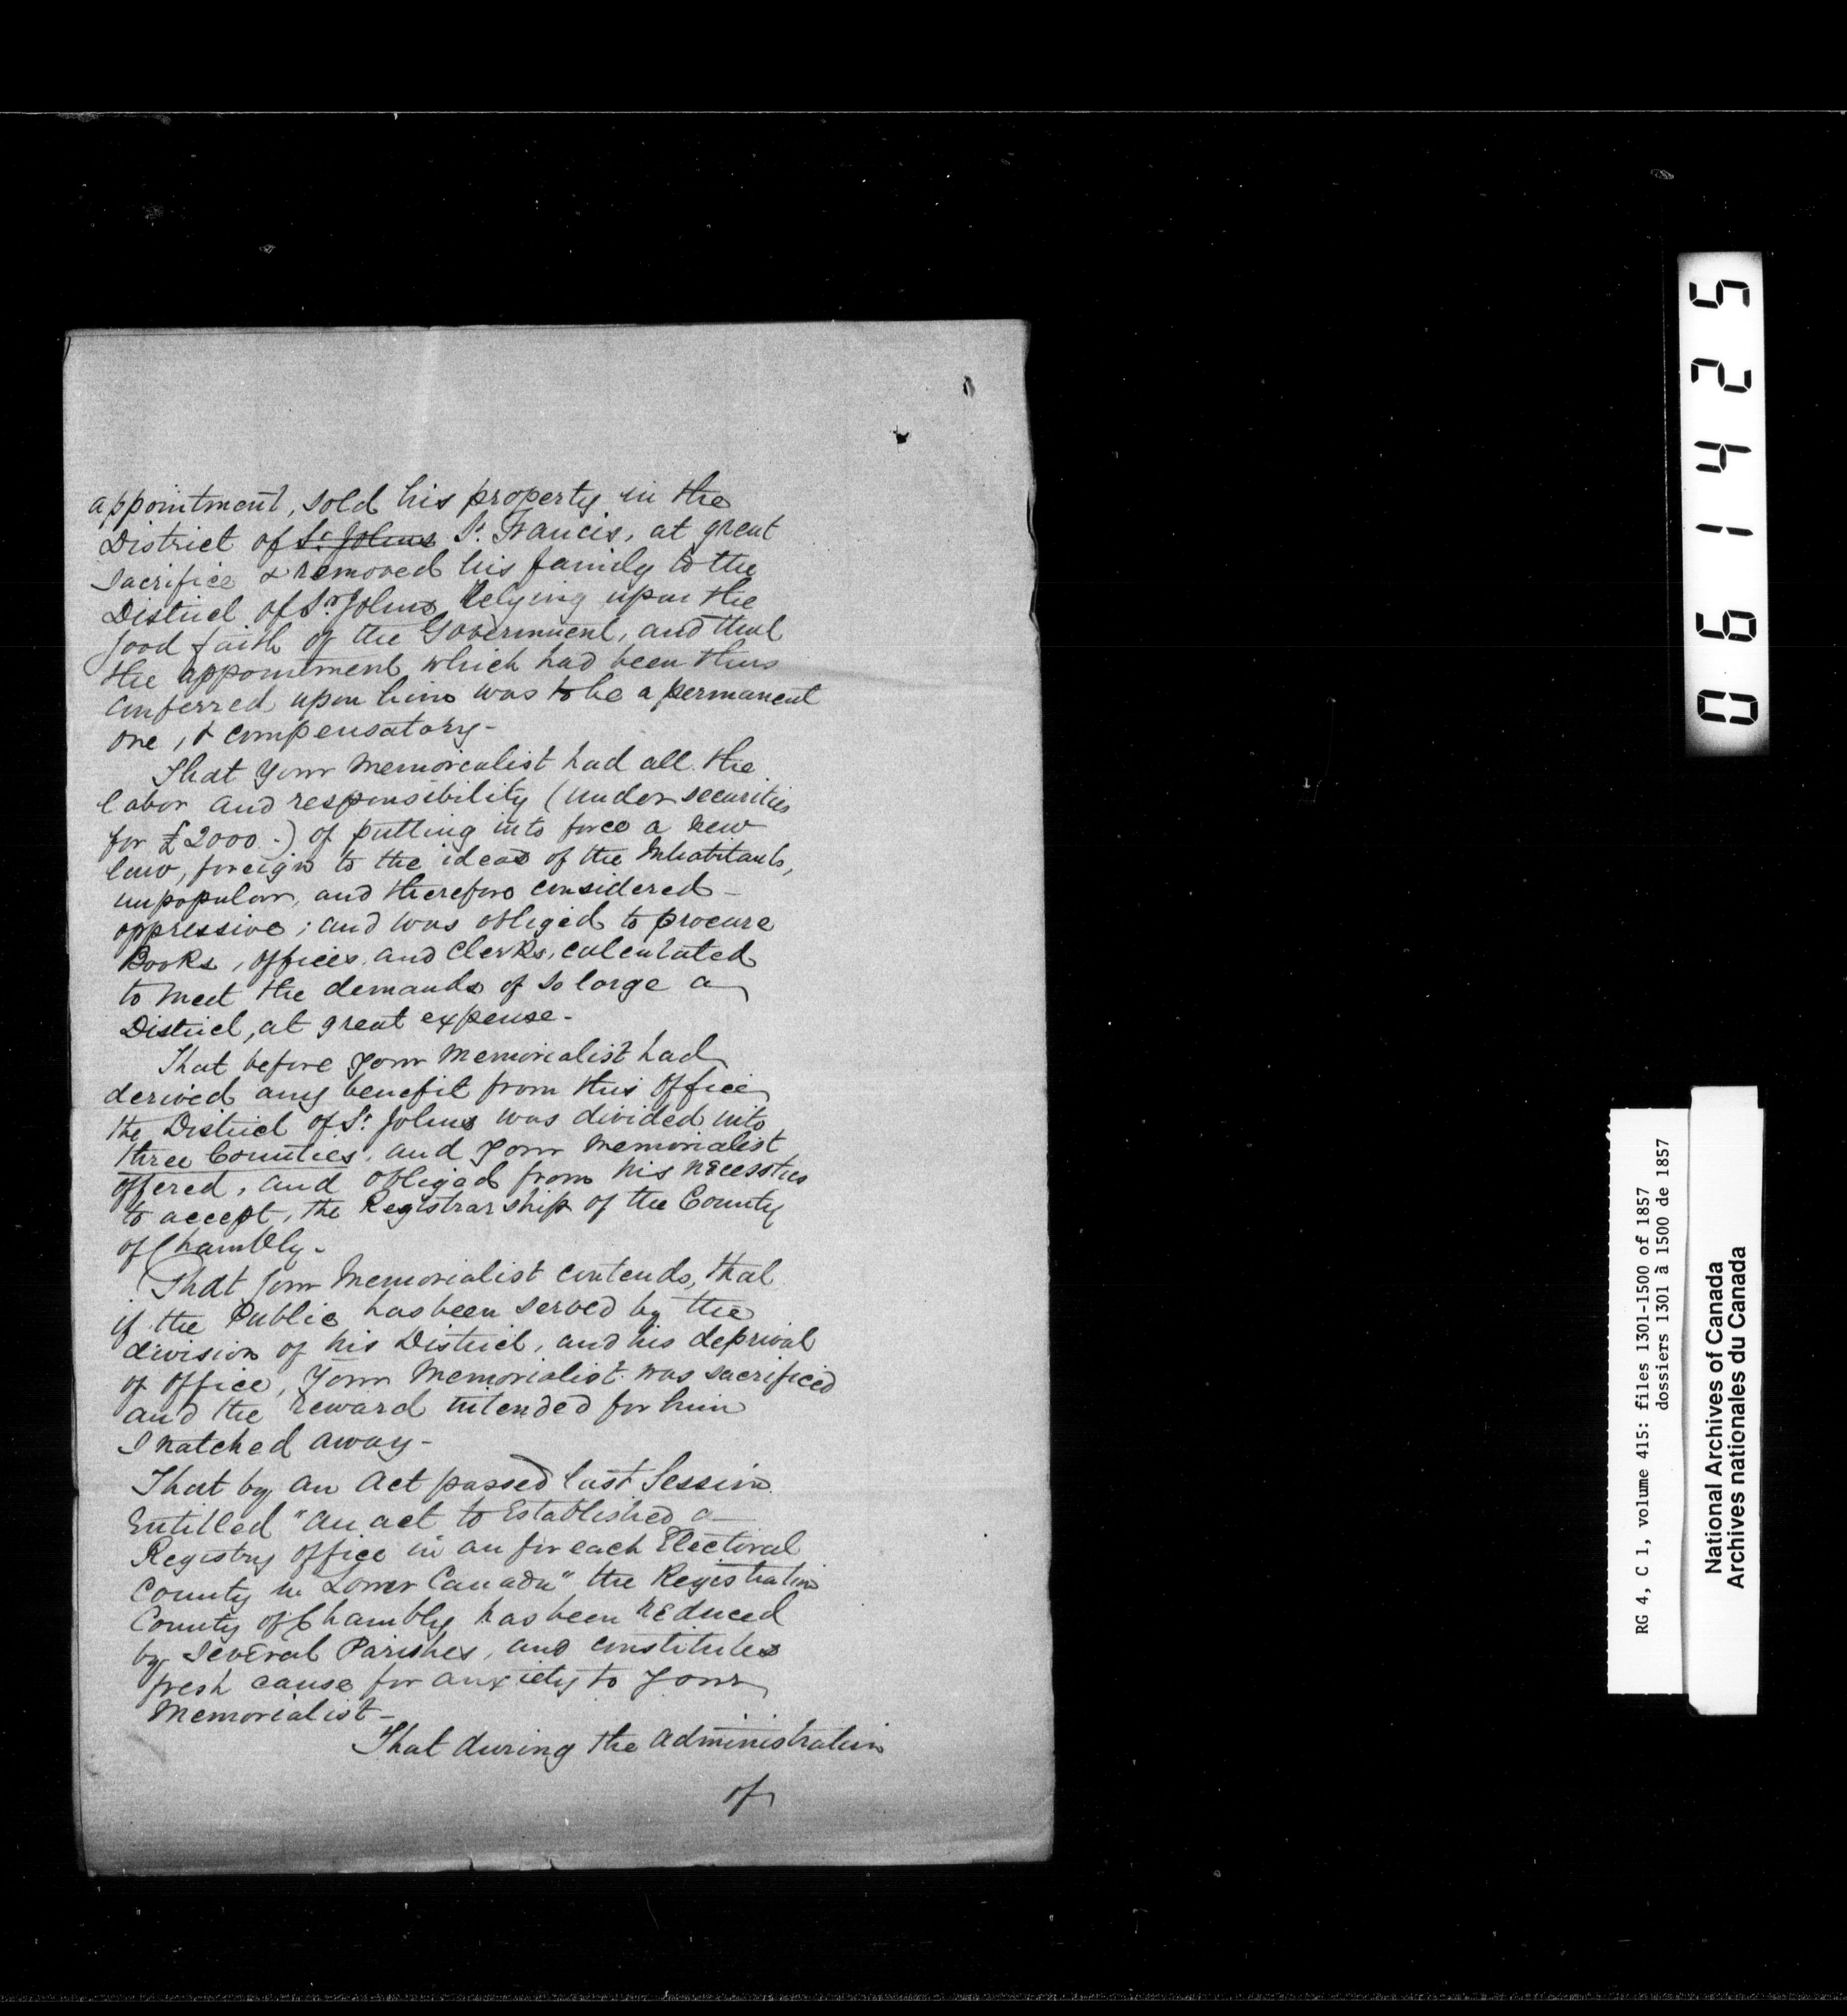 appointment, sold his property in the
District of St. Johns St. Francis, at great
sacrifice & removed his family to the
District of St. Johns relying upon the
good faith of the Government, and that
the appointment which had been thus
conferred upon him was to be a permanent
one, & compensatory -
That your Memorialist had all the
labor and responsibility (under securities
for £2000.-) of putting into force a new
law, foreign to the ideas of the Inhabitants,
unpopular, and therefore considered -
oppressive; and was obliged to procure
Books, offices, and Clerks, calculated
to meet the demands of so large a
District, at great expense -
That before your Memorialist had
derived any benefit from this office
the District of St. Johns was divided into
three Counties, and your Memorialist
offered, and obliged from his necessities
to accept, the Registrarship of the County
of Chambly -
That your Memorialist contends, that
if the Public has been served by the
division of his District, and his deprival
of office, Your Memorialist was sacrificed
and the reward intended for him
snatched away -
That by an Act passed last Session
Entitled "an act to Established a
Registry office in an for each Electoral
County in Lower Canada" the Registration
County of Chambly has been reduced
by several Parishes, and constitutes
fresh cause for anxiety to your
Memorialist -
That during the administration
of
061425
RG 4, C 1, volume 415: files 1301-1500 of 1857
dossiers 1301 à 1500 de 1857
National Archives of Canada
Archives nationales du Canada